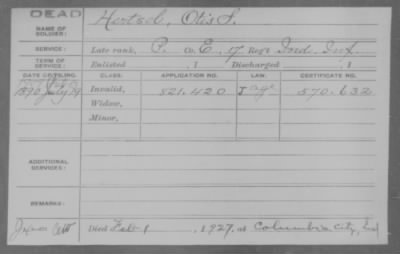 DEAD
NAME OF SOLDIER: Hartsel, Otis S.
SERVICE: Late rank, P. Co. E, 17 Reg't Ind. Inf.
TERM OF SERVICE: Enlisted , 1 Discharged , 1
DATE OF FILING. CLASS. APPLICATION NO. LAW. CERTIFICATE NO.
1890 July 19 Invalid, 821.420 J age 570.632
Widow,
Minor,
ADDITIONAL SERVICES:
REMARKS:
Died Feb 1, 1927, at Columbia City, Ind